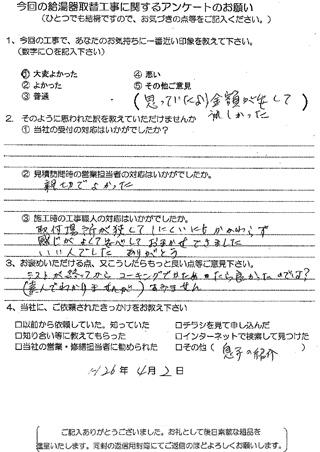 今回の給湯器取替工事に関するアンケートのお願い
(ひとつでも結構ですので、お気づきの点等をご記入ください。)
1、今回の工事で、あなたのお気持ちに一番近い印象を教えて下さい。
(数字に〇を記入下さい)
① 大変よかった ④ 悪い
② よかった ⑤ その他ご意見
③ 普通 (思っていたより金額が安して
うれしかった
2、そのように思われた訳を教えていただけませんか
① 当社の受付の対応はいかがでしたか?
② 見積訪問時の営業担当者の対応はいかがでしたか。
親切でよかった
③ 施工時の工事職人の対応はいかがでしたか。
取付場所が狭してしにくいにもかかわらず
感じがよくて安心しておまかせできました
いい人でした ありがとう
3、お褒めいただける点、又こうしたらもっと良い点等ご意見下さい。
テストが終ってからコーキングでかためたら良かったのでは?
(素人でわかりませんが) すみません
4、当社に、ご依頼されたきっかけをお教え下さい
□以前から依頼していた。知っていた □チラシを見て申し込んだ
□知り合い等に教えてもらった □インターネットで検索して見つけた
□当社の営業・修繕担当者に勧められた □その他( 息子の紹介
H26年 4月 2日
ご記入ありがとうございました。お礼として後日素敵な粗品を
進呈いたします。同封の返信用封筒にてご返信のほどよろしくお願いします。